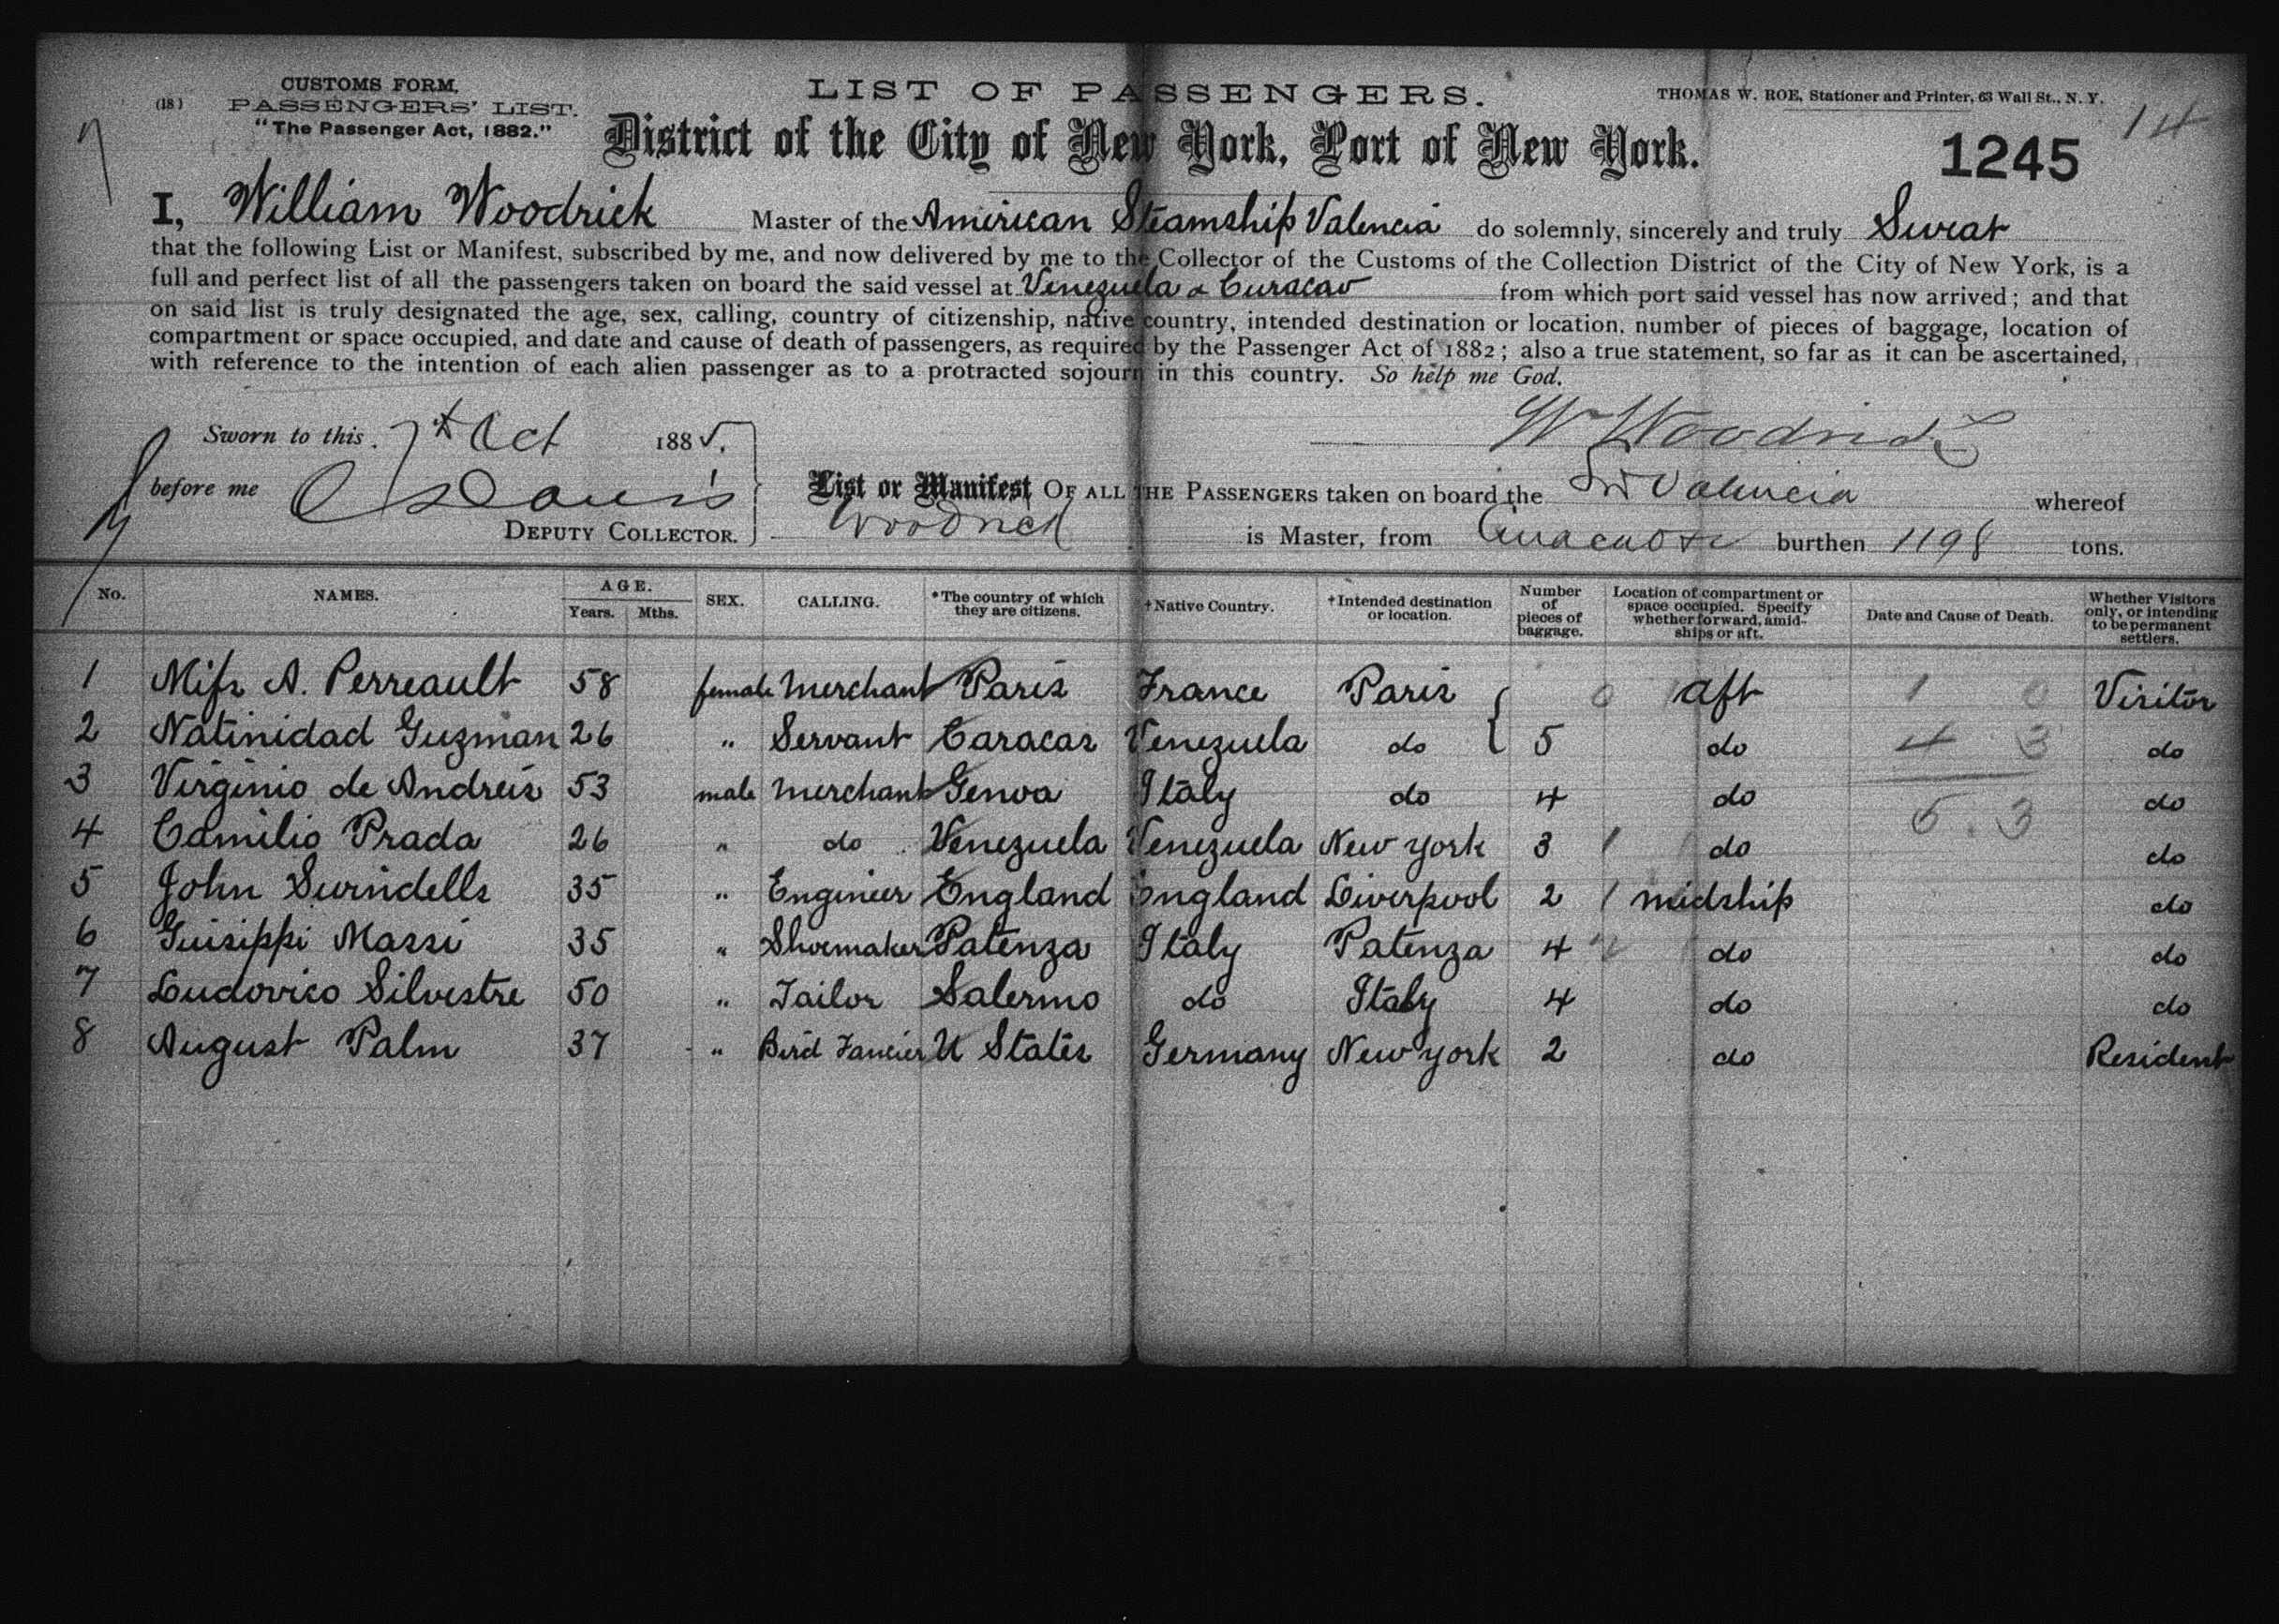 CUSTOMS FORM.
(18) PASSENGERS' LIST.
"The Passenger Act, 1882."
LIST OF PASSENGERS.
THOMAS W. ROE, Stationer and Printer, 63 Wall St., N. Y.
14
7
District of the City of New York, Port of New York.
1245
I, William Woodrick Master of the American Steamship Valencia do solemnly, sincerely and truly Swear
that the following List or Manifest, subscribed by me, and now delivered by me to the Collector of the Customs of the Collection District of the City of New York, is a
full and perfect list of all the passengers taken on board the said vessel at Venezuela & Curacao from which port said vessel has now arrived; and that
on said list is truly designated the age, sex, calling, country of citizenship, native country, intended destination or location, number of pieces of baggage, location of
compartment or space occupied, and date and cause of death of passengers, as required by the Passenger Act of 1882; also a true statement, so far as it can be ascertained,
with reference to the intention of each alien passenger as to a protracted sojourn in this country. So help me God.
Sworn to this 7th Oct 1885.
W Woodrick
before me C Davis
DEPUTY COLLECTOR.
List or Manifest OF ALL THE PASSENGERS taken on board the Str Valencia whereof
Woodrick is Master, from Curacao burthen 1198 tons.
No. NAMES. AGE. Years. Mths. SEX. CALLING. *The country of which they are citizens. †Native Country. †Intended destination or location. Number of pieces of baggage. Location of compartment or space occupied. Specify whether forward, amidships or aft. Date and Cause of Death. Whether Visitors only, or intending to be permanent settlers.
1 Miss A. Perreault 58 female Merchant Paris France Paris { 0 aft 1 0 Visitor
2 Natinidad Guzman 26 " Servant Caracas Venezuela do 5 do 4 3 do
3 Virginio de Andreis 53 male Merchant Genoa Italy do 4 do 5.3 do
4 Camilio Prada 26 " do Venezuela Venezuela New York 3 1 do do
5 John Swindells 35 " Engineer England England Liverpool 2 1 midship do
6 Guisippi Massi 35 " Shoemaker Patenza Italy Patenza 4 do do
7 Ludovico Silvestre 50 " Tailor Salermo do Italy 4 do do
8 August Palm 37 " Bird Fancier U States Germany New York 2 do Resident